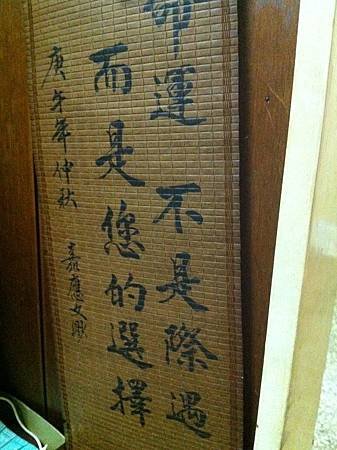 命運不是際遇
而是您的選擇
庚午年仲秋 嘉應文興